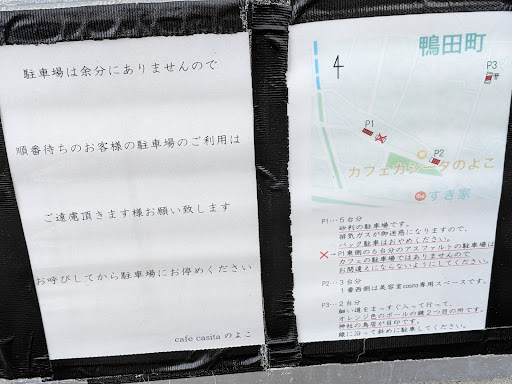 駐車場は余分にありませんので
順番待ちのお客様の駐車場のご利用は
ご遠慮頂きます様お願い致します
お呼びしてから駐車場にお停めください
cafe casita のよこ
鴨田町
4
P3
P1
P2
カフェカシータのよこ
すき家
P1…５台分
砂利の駐車場です。
排気ガスが御迷惑になりますので、
バック駐車はおやめください。
×→P1東側の６台分のアスファルトの駐車場は
カフェの駐車場ではありませんので
お間違えにならないようにしてください。
P2…３台分
１番西側は美容室casita専用スペースです。
P3…２台分
細い道をまっすぐ入って行って、
オレンジ色のポールの鎖２つ目の所です。
神社の鳥居が目印です。
線に沿って斜めに駐車してください。